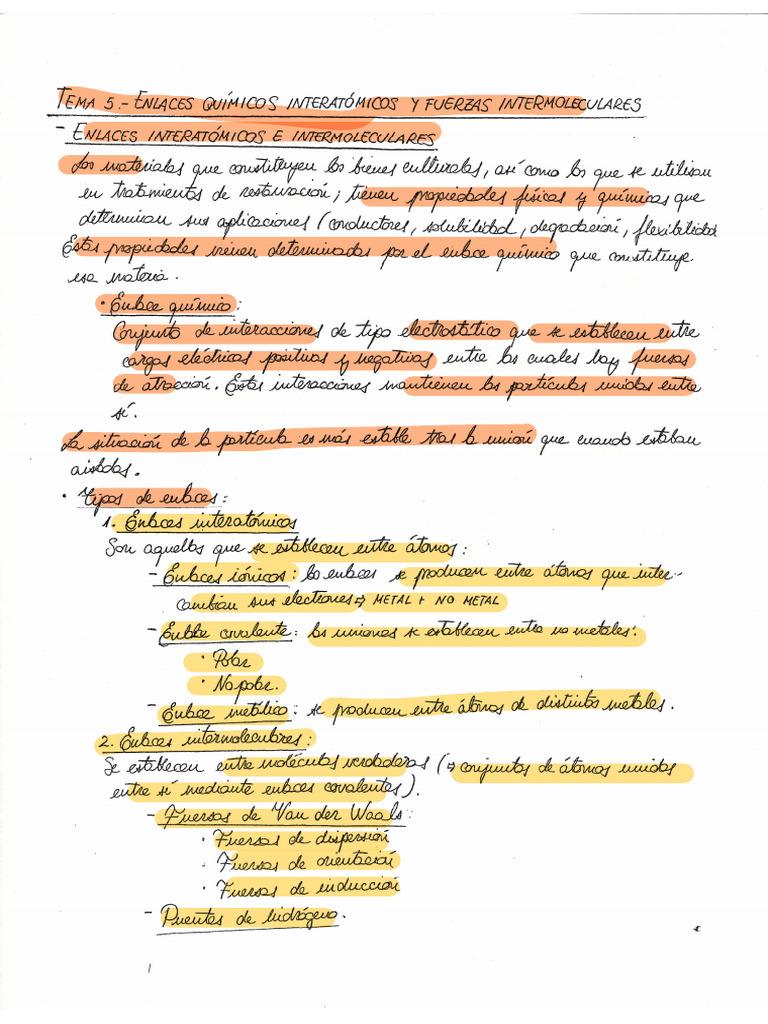 TEMA 5.- ENLACES QUÍMICOS INTERATÓMICOS Y FUERZAS INTERMOLECULARES
- ENLACES INTERATÓMICOS E INTERMOLECULARES
Los materiales que constituyen los bienes culturales, así como los que se utilisan
en tratamientos de restauración; tienen propiedades físicas y químicas que
determinan sus aplicaciones (conductores, solubilidad, degradación, flexibilidad
Estas propiedades vienen determinadas por el enlace químico que constituye
esa materia.
· Enlace químico:
Conjunto de interacciones de tipo electrostático que se establecen entre
cargas eléctricas positivas y negativas entre las cuales hay fuersas
de atracción. Estas interacciones mantienen las partículas unidas entre
sí.
La situación de la partícula es más estable tras la unión que cuando estaban
aisladas.
· Tipos de enlaces:
1. Enlaces interatómicos
Son aquellos que se establecen entre átomos:
- Enlaces iónicos: los enlaces se producen entre átomos que inter-
cambian sus electrones ⇒ METAL + NO METAL
- Enlace covalente: las uniones se establecen entre no metales:
· Polar
· No polar.
- Enlace metálico: se producen entre átomos de distintos metales.
2. Enlaces intermoleculares:
Se establecen entre moléculas verdaderas (⇒ conjuntos de átomos unidos
entre sí mediante enlaces covalentes).
- Fuersas de Van der Waals:
· Fuersas de dispersión
· Fuersas de orientación
· Fuersas de inducción
- Puentes de hidrógeno.
1